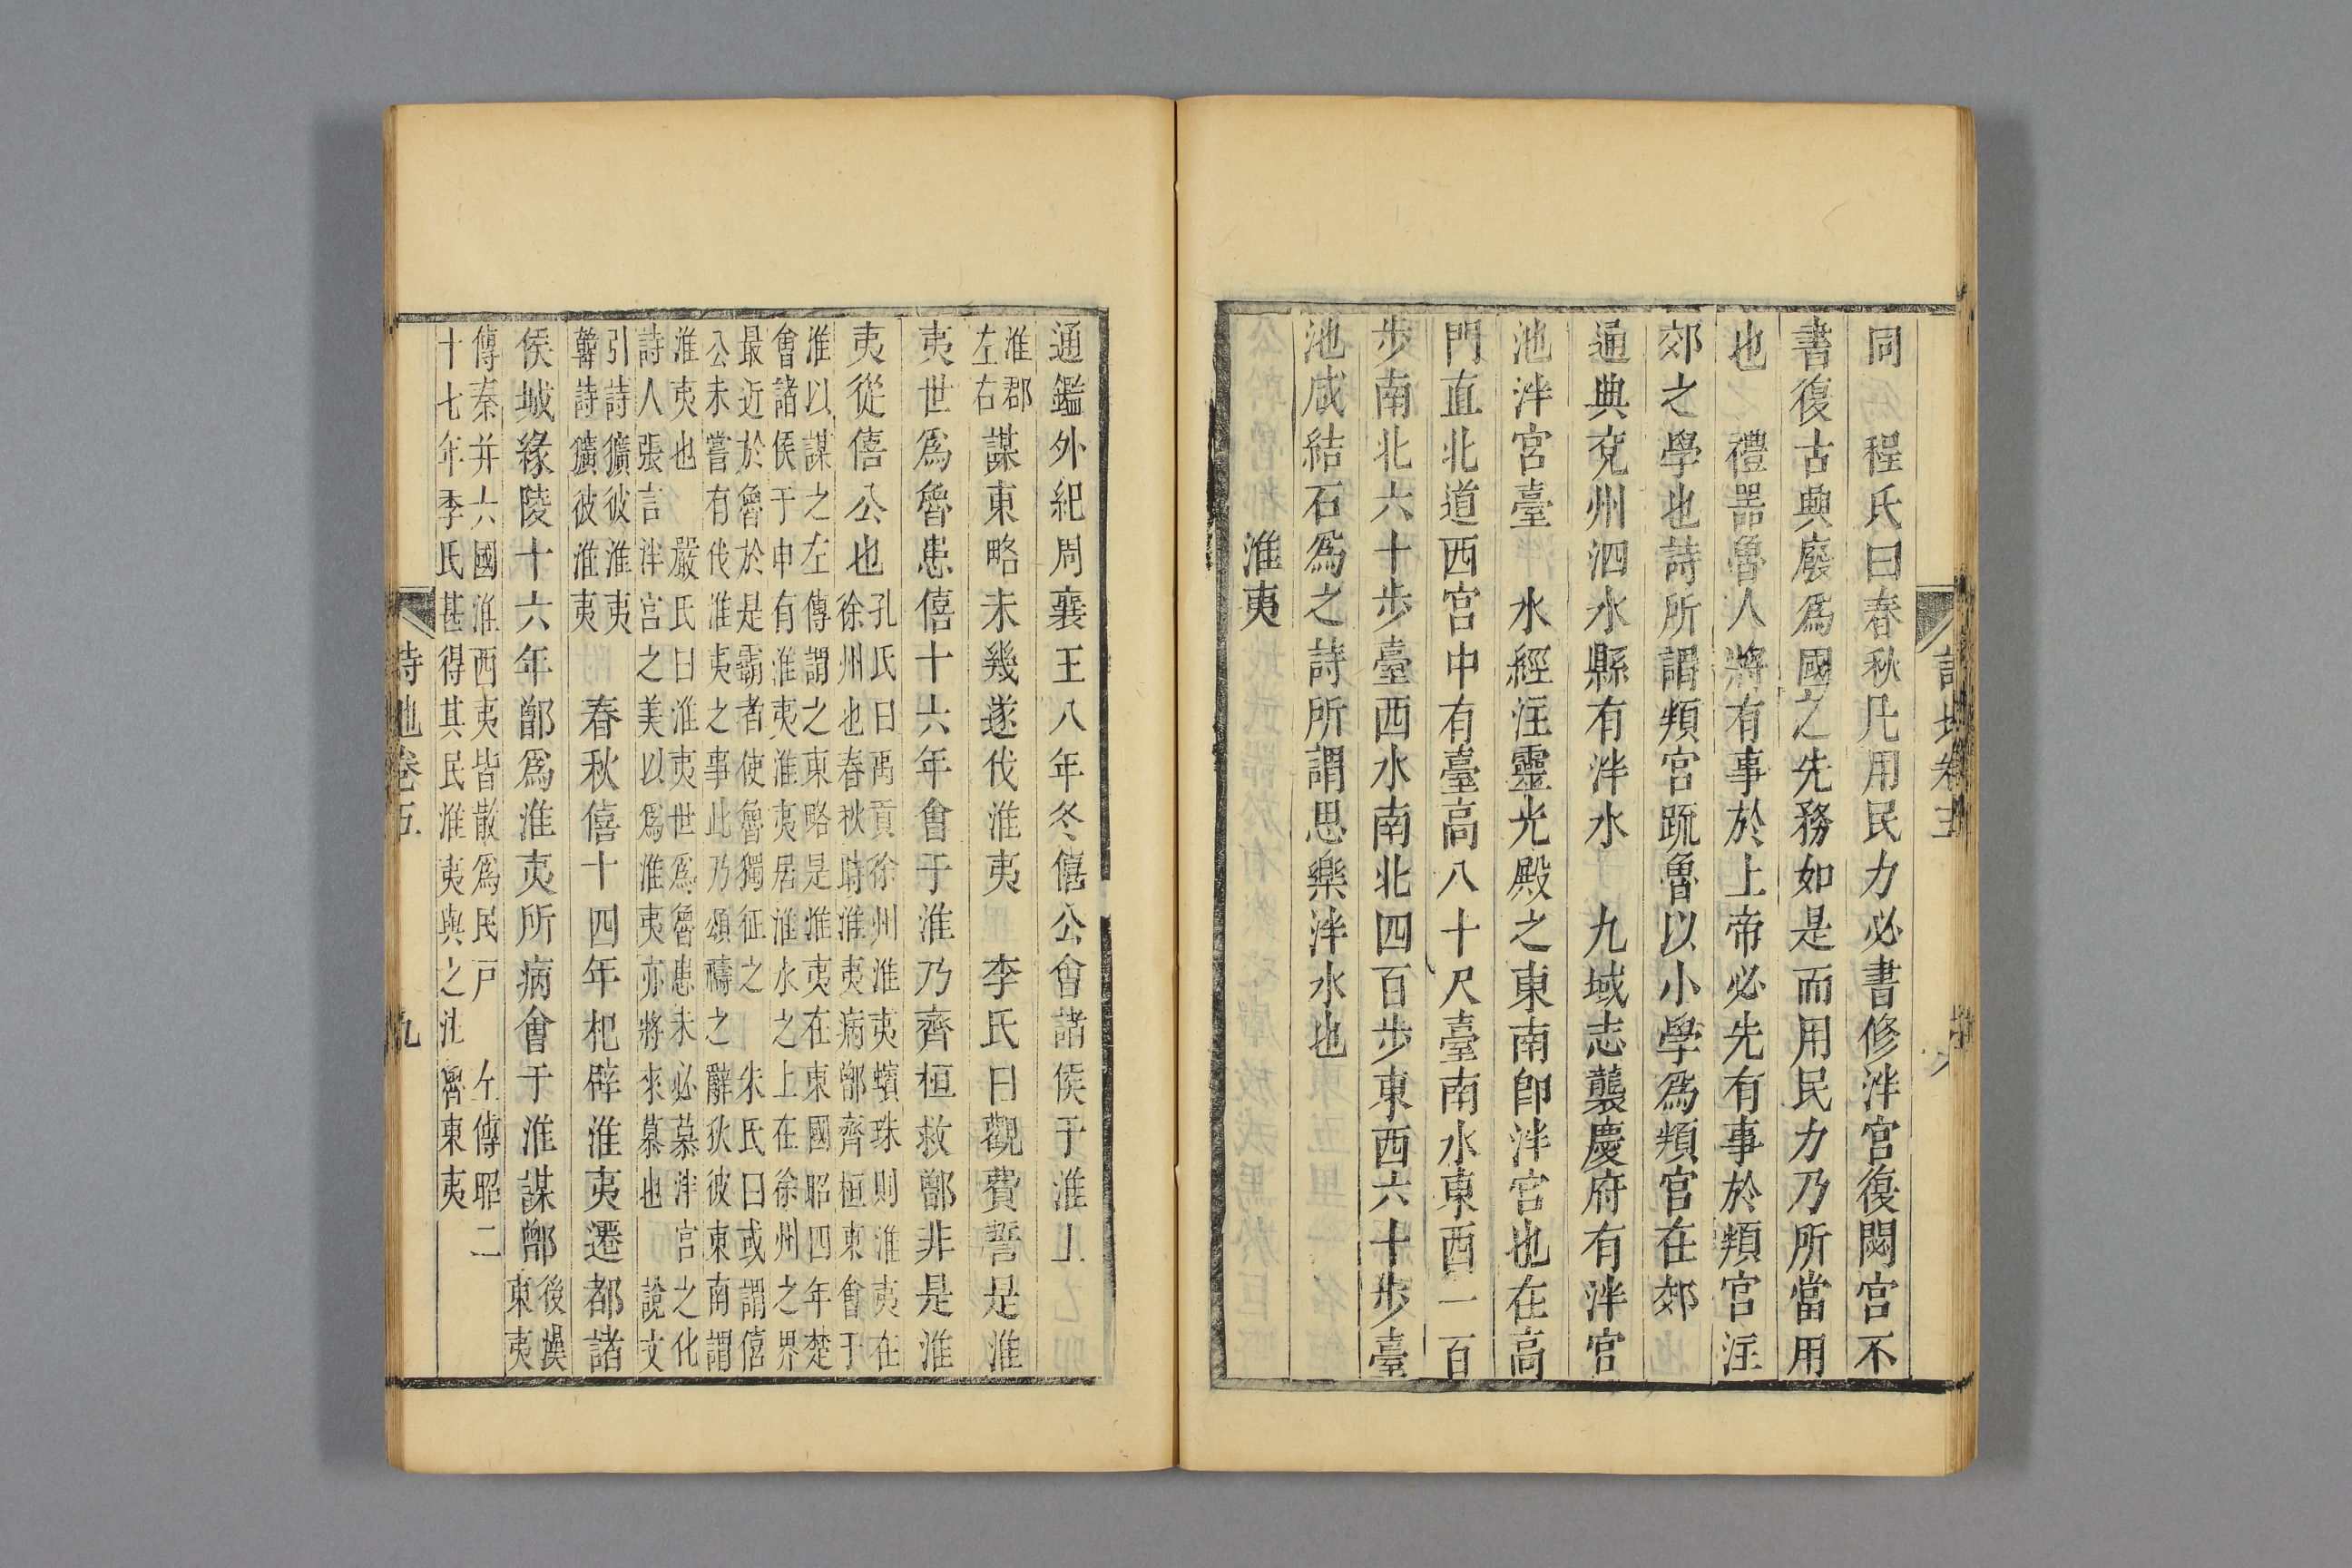 詩地卷五 八
同 程氏曰春秋凡用民力必書修泮宮復閟宮不
書復古興廢爲國之先務如是而用民力乃所當用
也 禮器魯人將有事於上帝必先有事於頖宮注
郊之學也詩所謂頖宮䟽魯以小學爲頖宮在郊
通典兗州泗水縣有泮水 九域志襲慶府有泮宮
池泮宮臺 水經注靈光殿之東南卽泮宮也在高
門直北道西宮中有臺高八十尺臺南水東西一百
步南北六十步臺西水南北四百步東西六十步臺
池咸結石爲之詩所謂思樂泮水也
淮夷
通鑑外紀周襄王八年冬僖公會諸侯于淮上
淮郡
左右
謀東略未幾遂伐淮夷 李氏曰觀費誓是淮
夷世爲魯患僖十六年會于淮乃齊桓救鄫非是淮
夷從僖公也
孔氏曰禹貢徐州淮夷蠙珠則淮夷在
徐州也春秋時淮夷病鄫齊桓東會于
淮以謀之左傳謂之東略是淮夷在東國昭四年楚
會諸侯于申有淮夷淮夷居淮水之上在徐州之界
最近於魯於是霸者使魯獨征之 朱氏曰或謂僖
公未嘗有伐淮夷之事此乃頌禱之辭狄彼東南謂
淮夷也 嚴氏曰淮夷世爲魯患未必慕泮宮之化
詩人張言泮宮之美以爲淮夷亦將來慕也 說文
引詩獷彼淮夷
韓詩獷彼淮夷
春秋僖十四年杞辟淮夷遷都諸
侯城緣陵十六年鄫爲淮夷所病會于淮謀鄫
後漢
東夷
傳秦并六國淮西夷皆散爲民戶 左傳昭二
十七年季氏甚得其民淮夷與之注魯東夷
詩地卷五 九